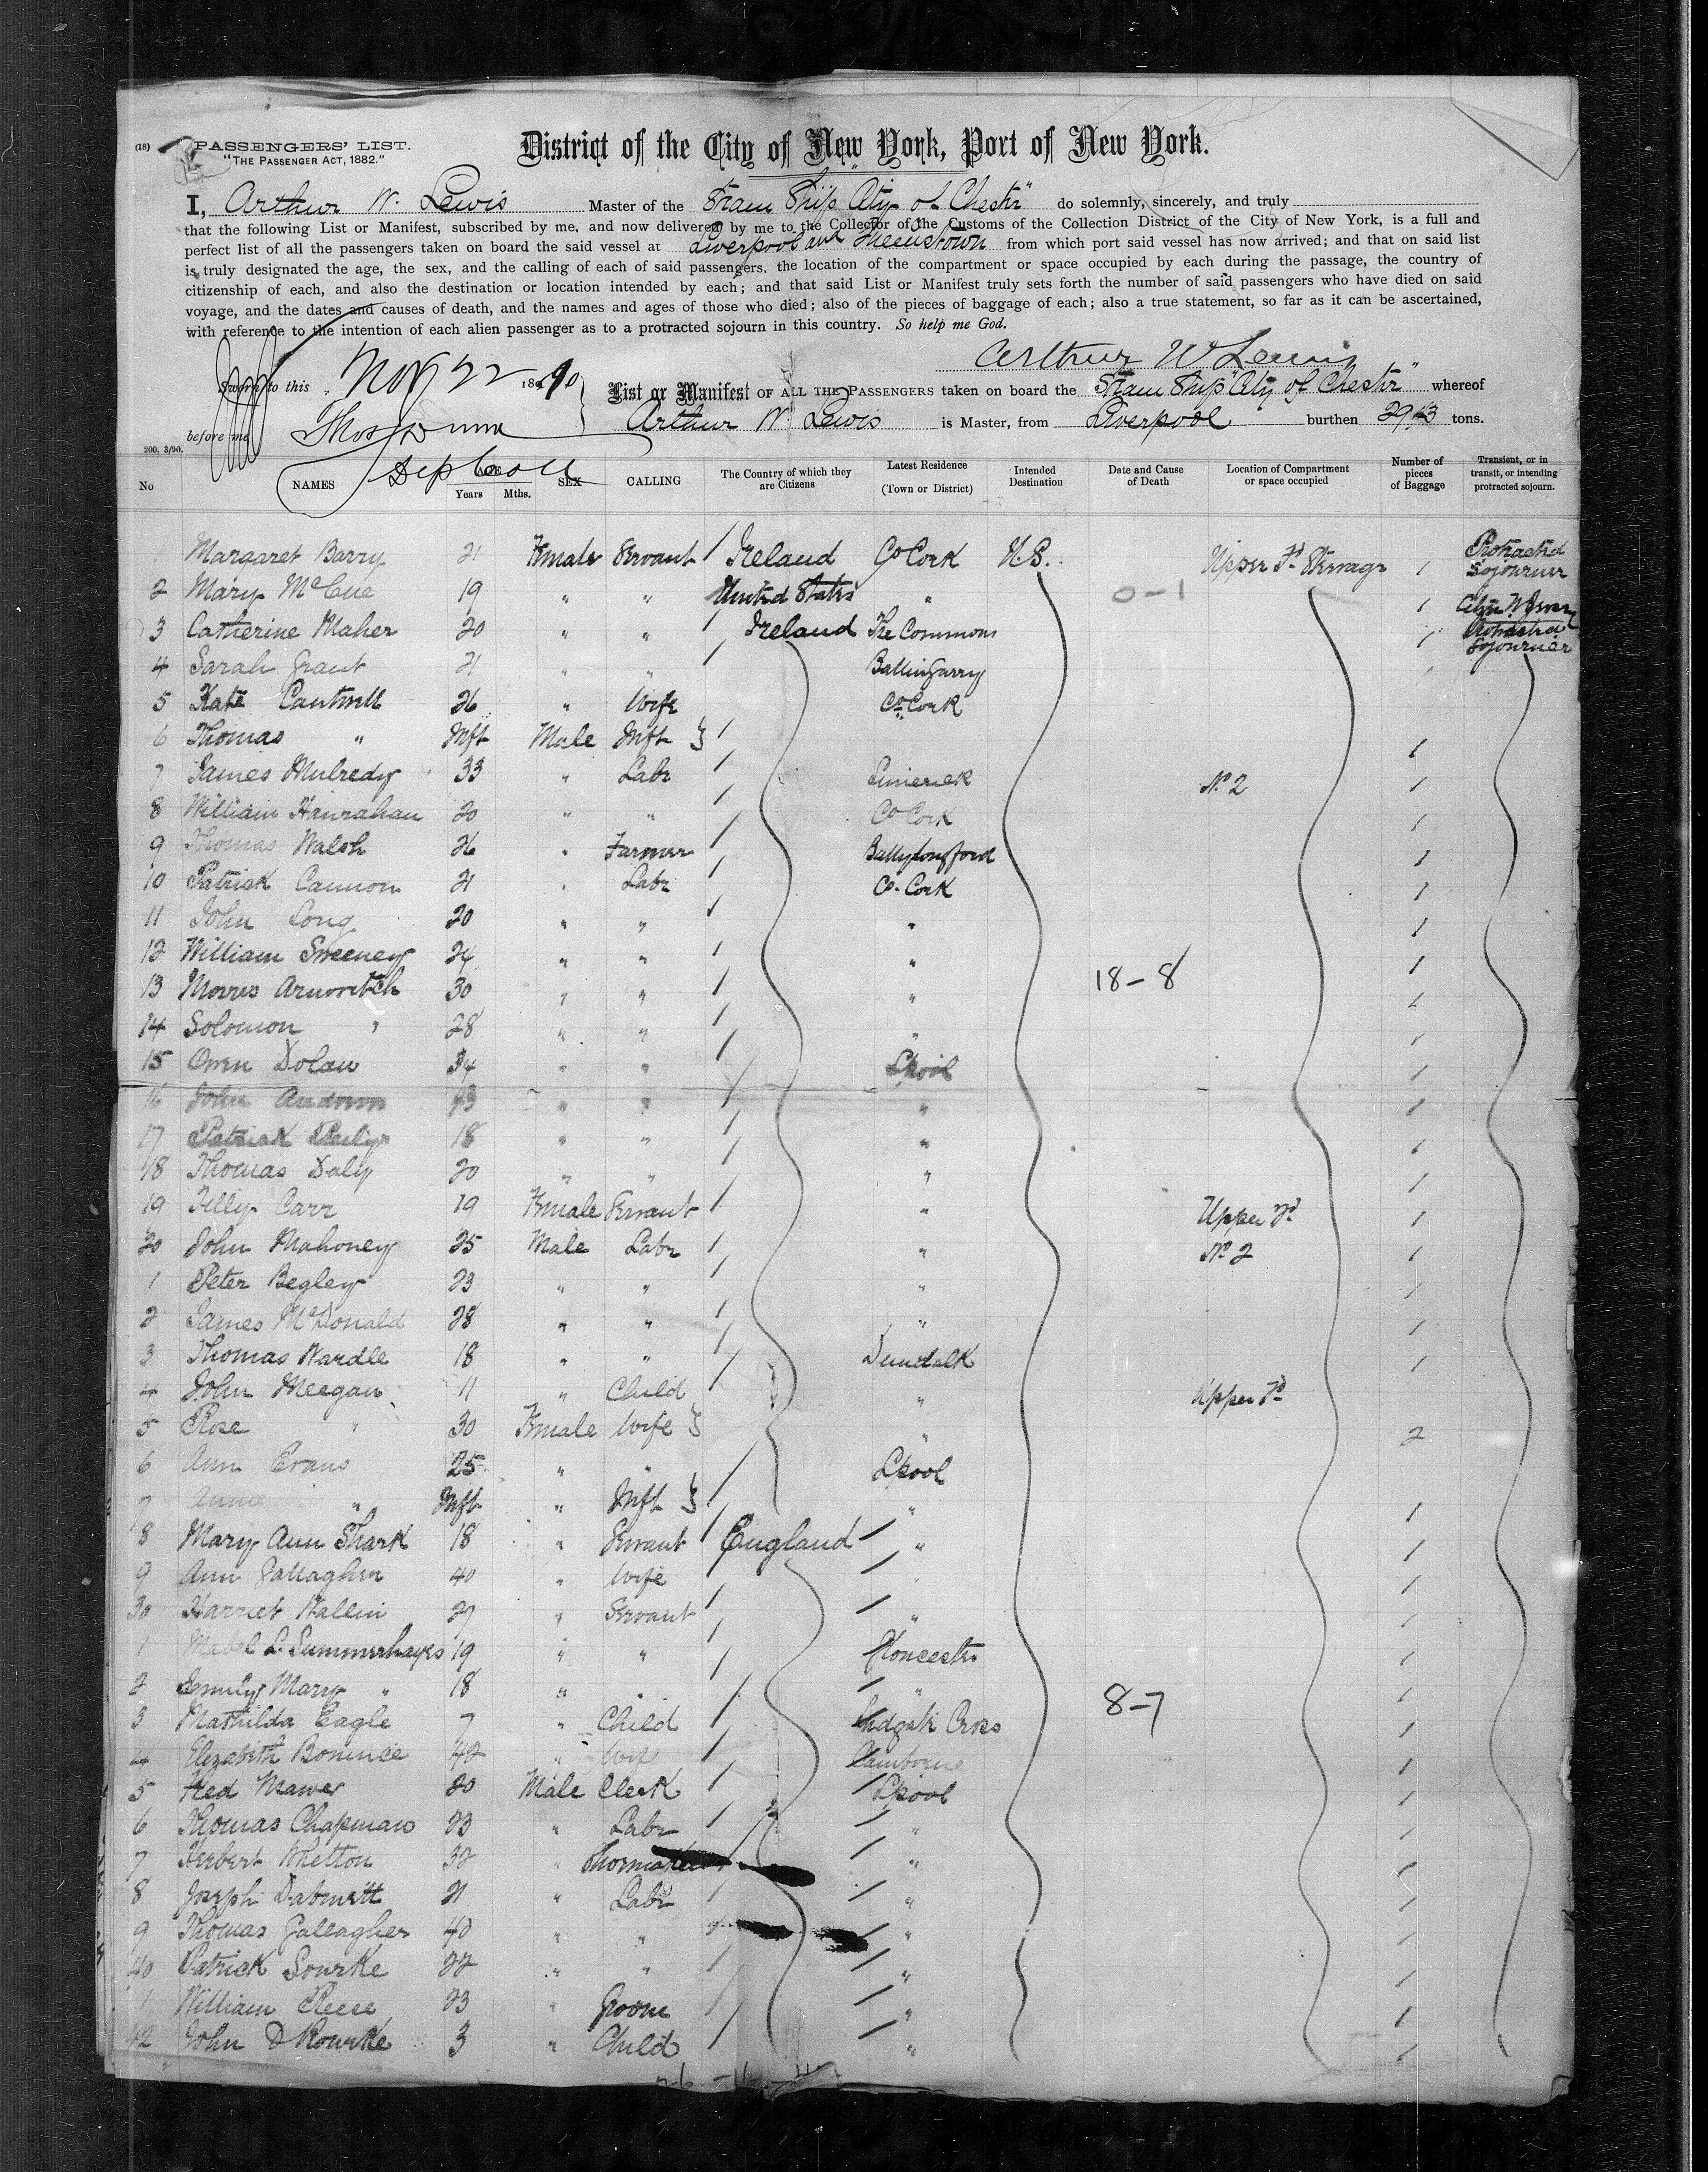 (18)
PASSENGERS' LIST.
"THE PASSENGER ACT, 1882."
District of the City of New York, Port of New York.
I, Arthur W. Lewis Master of the Steam Ship City of Chester" do solemnly, sincerely, and truly
that the following List or Manifest, subscribed by me, and now delivered by me to the Collector of the Customs of the Collection District of the City of New York, is a full and
perfect list of all the passengers taken on board the said vessel at Liverpool and Queenstown from which port said vessel has now arrived; and that on said list
is truly designated the age, the sex, and the calling of each of said passengers, the location of the compartment or space occupied by each during the passage, the country of
citizenship of each, and also the destination or location intended by each; and that said List or Manifest truly sets forth the number of said passengers who have died on said
voyage, and the dates and causes of death, and the names and ages of those who died; also of the pieces of baggage of each; also a true statement, so far as it can be ascertained,
with reference to the intention of each alien passenger as to a protracted sojourn in this country. So help me God.
Arthur W Lewis
Sworn to this Nov 22 1890
before me Thos Dunn
List or Manifest OF ALL THE PASSENGERS taken on board the Steam Ship "City of Chester" whereof
Arthur W. Lewis is Master, from Liverpool burthen tons.
200, 3/90.
No NAMES AGE Years Mths. SEX CALLING The Country of which they are Citizens Latest Residence (Town or District) Intended Destination Date and Cause of Death Location of Compartment or space occupied Number of pieces of Baggage Transient, or in transit, or intending protracted sojourn.
Margaret Barry 21 Female Servant Ireland Co Cork U.S. Upper Steerage 1 Protracted Sojourner
2 Mary McCue 19 " " United States " 0-1 1
3 Catherine Maher 20 " " Ireland The Commons 1 Protracted Sojourner
4 Sarah Grant 21 " " Ballingarry
5 Kate Cantwell 26 " Wife Co Cork
6 Thomas " Inft Male Inft 1
7 James Mulredy 33 " Labr Limerick No 2 1
8 William Hanrahan 20 " " Co Cork 1
9 Thomas Walsh 26 " Farmer Ballylongford 1
10 Patrick Cannon 21 " Labr Co. Cork 1
11 John Long 20 " " " 1
12 William Sweeney 24 " " " 1
13 Morris Arnovitch 30 " " " 18-8 1
14 Solomon " 28 " " " 1
15 Owen Dolan 34 " " Lpool 1
16 John " " " 1
17 Patrick Reily 18 " " " 1
18 Thomas Daly 20 " " " 1
19 Tilly Carr 19 Female Servant " Upper 1
20 John Mahoney 25 Male Labr " No 2 1
1 Peter Begley 23 " " " 1
2 James McDonald 28 " " " 1
3 Thomas Wardle 18 " " Dundalk 1
4 John Meegan 11 " Child " Upper
5 Rose " 30 Female Wife " 2
6 Ann Evans 25 " " Lpool
7 Annie " Inft " Inft " 1
8 Mary Ann Shark 18 " Servant England " 1
9 Ann Gallagher 40 " Wife " 1
30 Harriet Wallin 27 " Servant " 1
1 Mabel L. Summerhayes 19 " " Gloucester 1
2 Emily Mary " 18 " " " 1
3 Mathilda Eagle 7 " Child Cross 8-7 1
4 Elizabeth 42 " Wife Camborne 1
5 Fred Mawer 20 Male Clerk Lpool 1
6 Thomas Chapman 23 " Labr " 1
7 Herbert Whetton 32 " Shoemaker " 1
8 Joseph 21 " Labr " 1
9 Thomas Gallagher 40 " " " 1
40 Patrick 22 " " " 1
1 William Reese 23 " Groom " 1
42 John O Rourke 3 " Child " 1